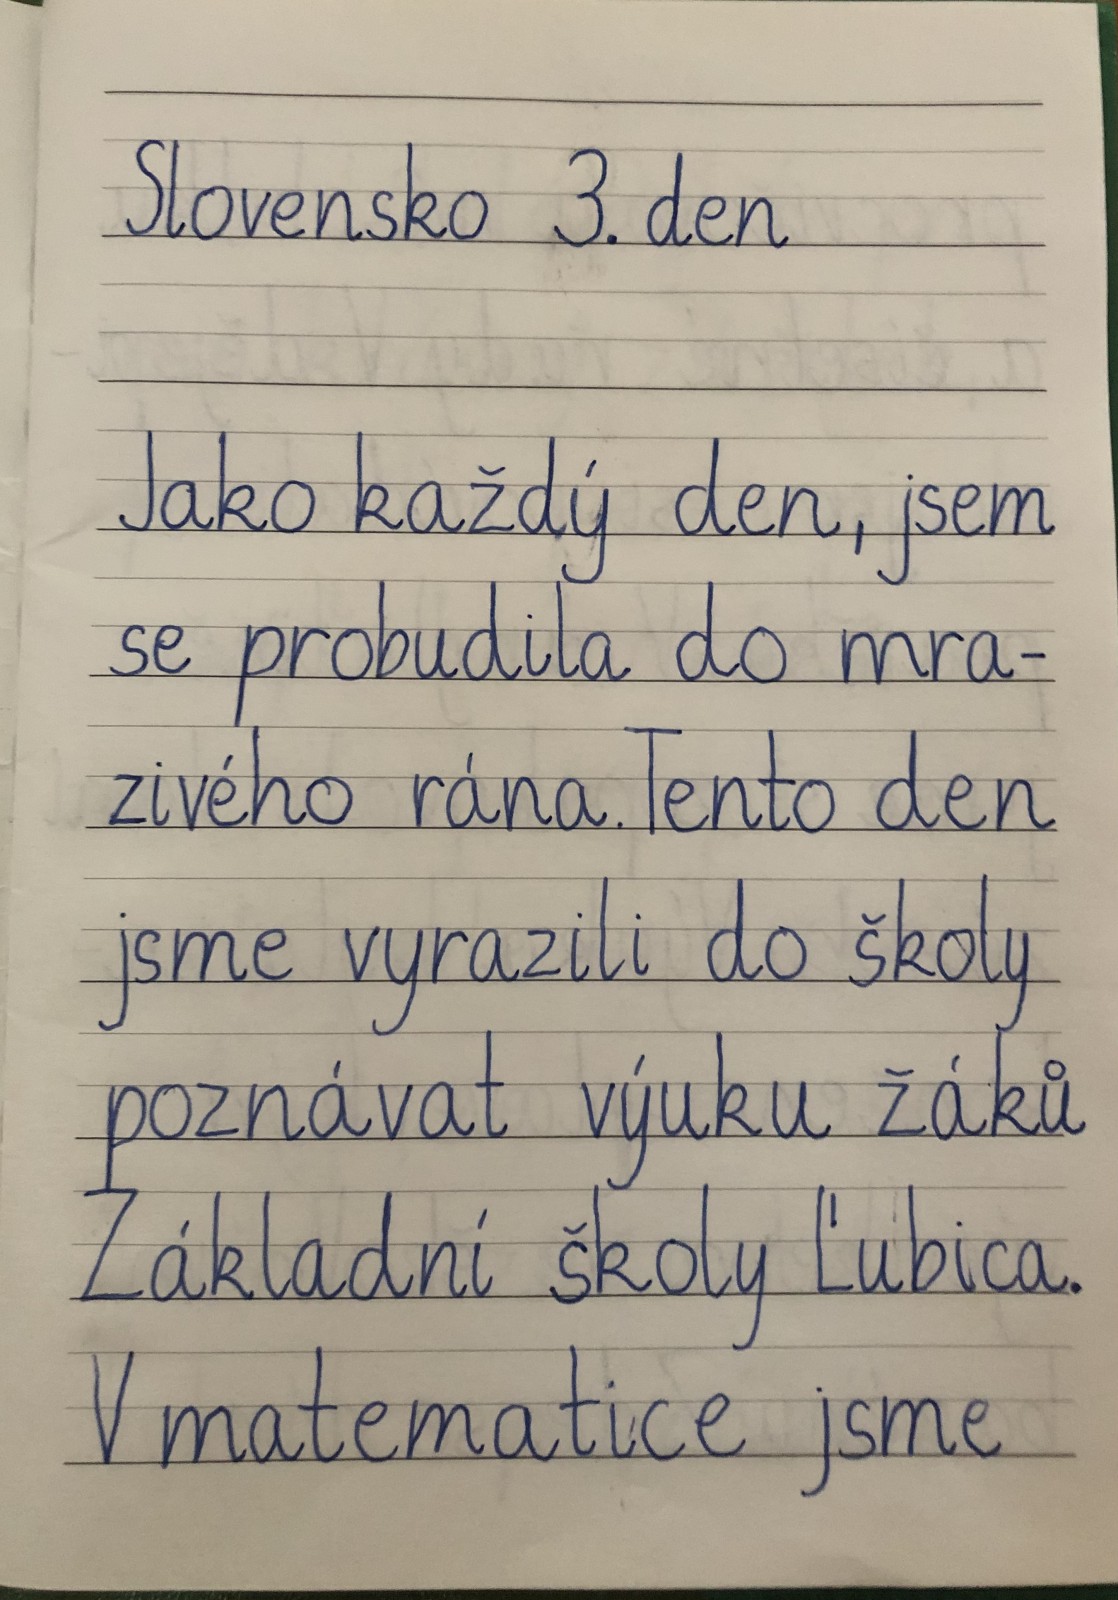 Slovensko 3. den
Jako každý den, jsem
se probudila do mra-
zivého rána. Tento den
jsme vyrazili do školy
poznávat výuku žáků
Základní školy Ľubica.
V matematice jsme